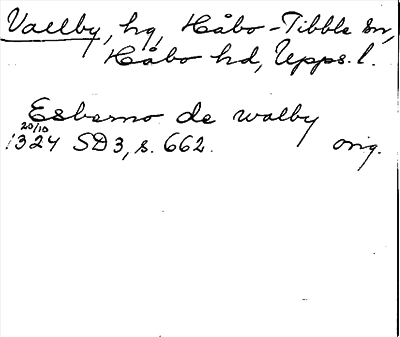 Vallby, hg, Håbo-Tibble sn,
Håbo hd, Upps. l.
Esberno de walby
20/10
1324 SD3, s. 662. orig.